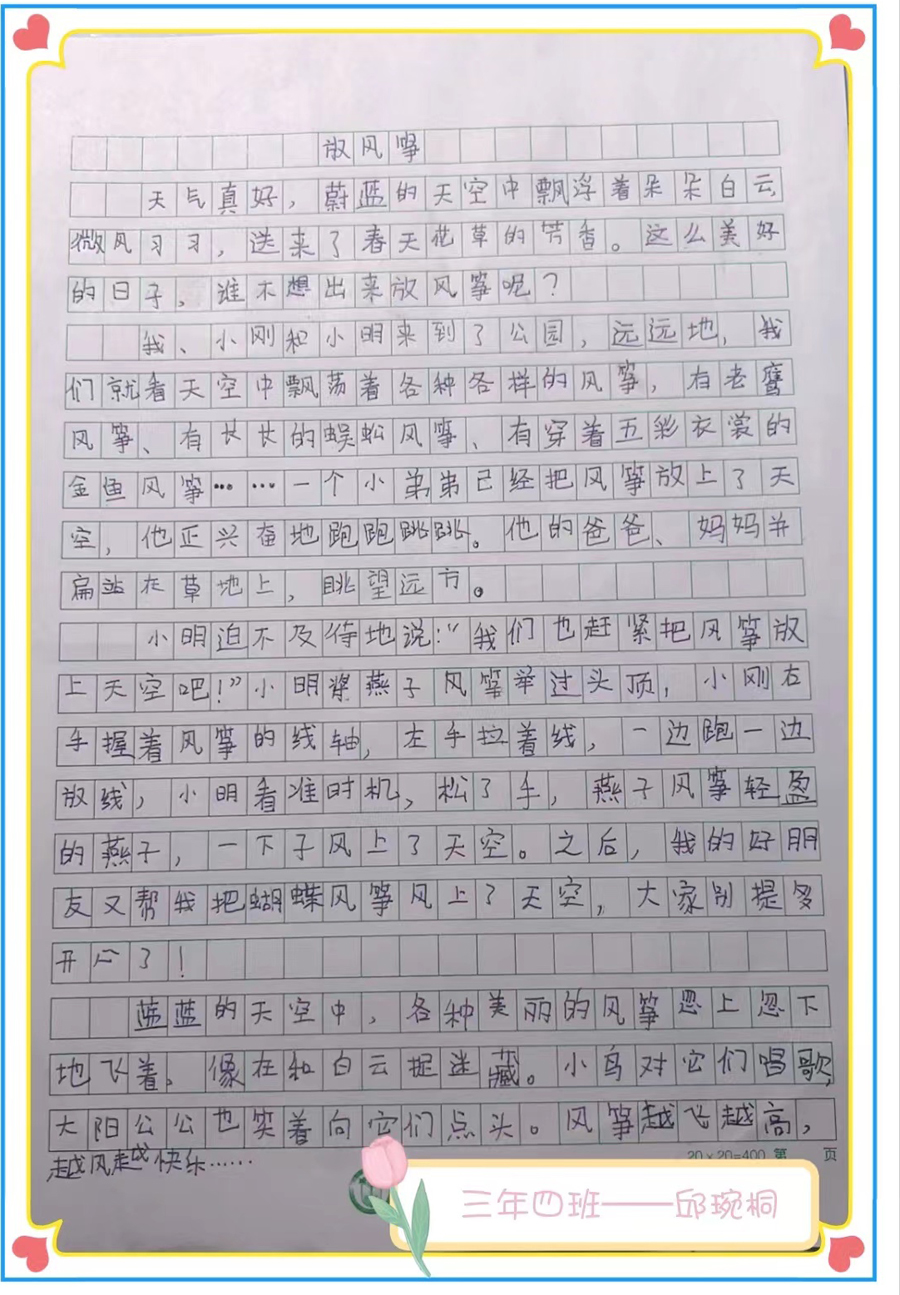 放风筝
天气真好，蔚蓝的天空中飘浮着朵朵白云，
微风习习，送来了春天花草的芳香。这么美好
的日子，谁不想出来放风筝呢？
我、小刚和小明来到了公园，远远地，我
们就看天空中飘荡着各种各样的风筝，有老鹰
风筝、有长长的蜈蚣风筝、有穿着五彩衣裳的
金鱼风筝……一个小弟弟已经把风筝放上了天
空，他正兴奋地跑跑跳跳。他的爸爸、妈妈并
扁站在草地上，眺望远方。
小明迫不及待地说：“我们也赶紧把风筝放
上天空吧！”小明将燕子风筝举过头顶，小刚右
手握着风筝的线轴，左手拉着线，一边跑一边
放线，小明看准时机，松了手，燕子风筝轻盈
的燕子，一下子风上了天空。之后，我的好朋
友又帮我把蝴蝶风筝风上了天空，大家别提多
开心了！
蓝蓝的天空中，各种美丽的风筝忽上忽下
地飞着，像在和白云捉迷藏。小鸟对它们唱歌，
太阳公公也笑着向它们点头。风筝越飞越高，
越风越快乐……
20×20=400 第 页
三年四班——邱琬桐